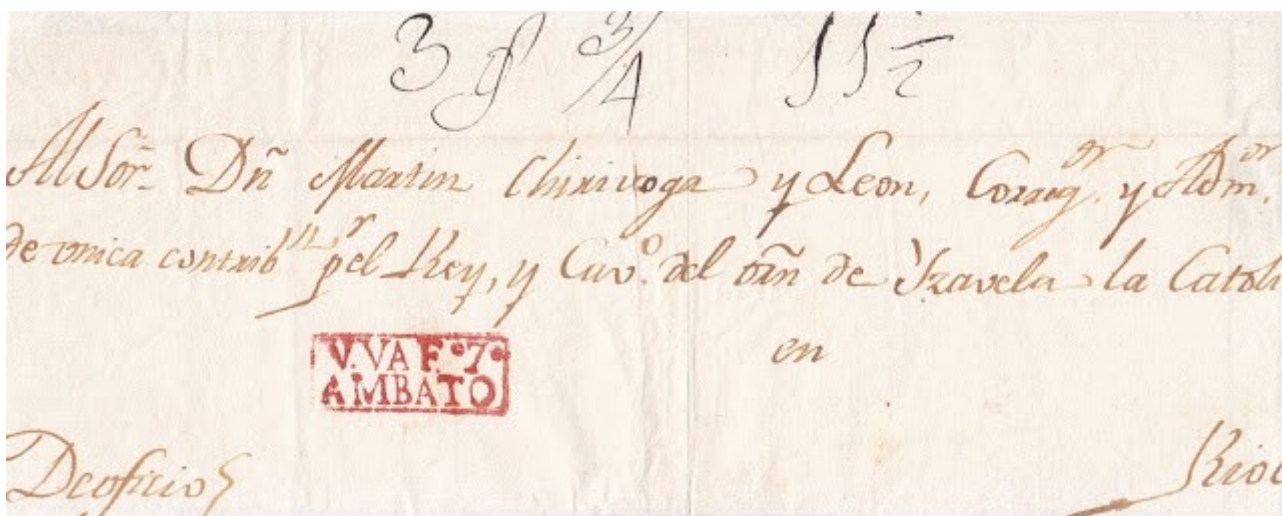 3 3/4 11 1/2
Al Sor. Dn Martin Chirivoga y Leon, Corrigor. y Admor.
de vnica contribn pr el Rey, y Cavo. del orn de Yzavela la Catoli
V.VA F.7.
AMBATO
en
De oficio
Riob